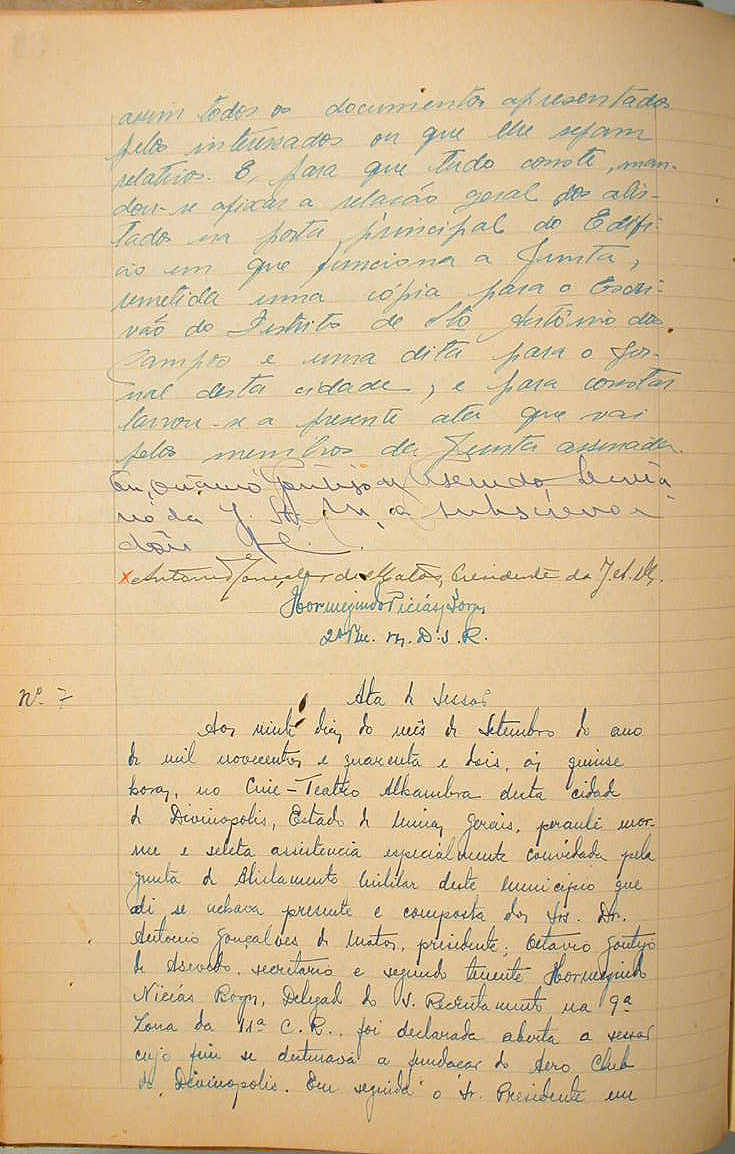 assim todos os documentos apresentados
pelos interessados ou que lhe sejam
relativos. E, para que tudo conste, man-
dou-se afixar a relação geral dos alis-
tados na porta principal do Edifí-
cio em que funciona a Junta,
remetida uma cópia para o Escri-
vão do Distrito de Sto Antônio dos
Campos e uma dita para o Jor-
nal desta cidade, e para constar
lavrou-se a presente ata que vai
pelos membros da Junta assinada.
Eu, Otavio Gontijo d' Azevedo, Secretá-
rio da J. A. M., a subscrevo
Antonio Gonçalves de Matos, Presidente da J. A. M.
2º Ten. D. S. R.
Nº 7
Ata de sessão
Aos vinte dias do mês de Setembro do ano
de mil novecentos e quarenta e dois, ás quinse
horas, no Cine-Teatro Alhambra desta cidade
de Divinopolis, Estado de Minas Gerais, perante enor-
me e seleta assistencia especialmente convidada pela
Junta de Alistamento Militar deste municipio que
ali se achava presente e composta dos Srs. Dr.
Antonio Gonçalves de Matos, presidente; Octavio Gontijo
de Azevedo, secretario e segundo tenente Hormezindo
Nicias Delegado do S. Recrutamento na 9ª
Zona da 11ª C.R., foi declarada aberta a sessão
cujo fim se destinava a fundação do Aero Club
de Divinopolis. Em seguida o Sr. Presidente em